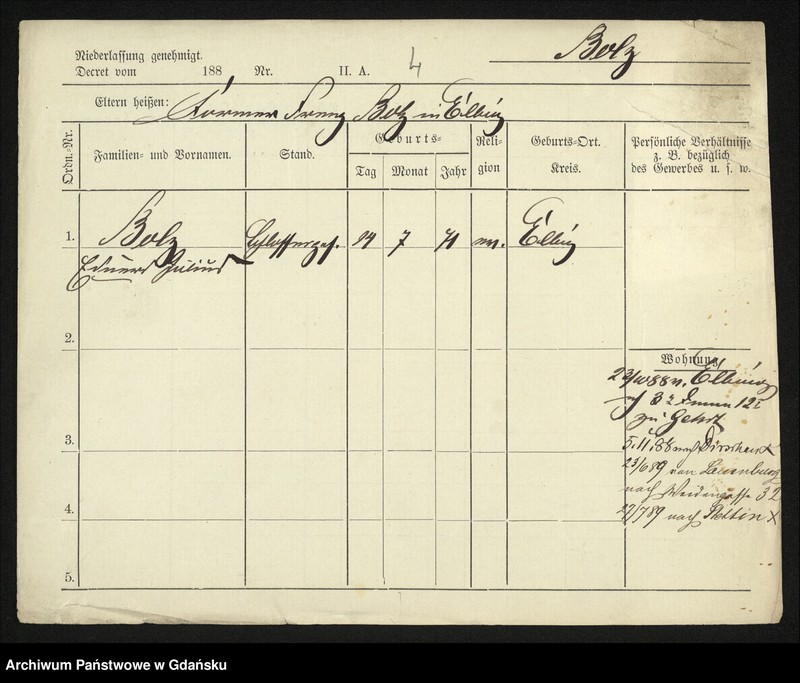 Bolz
Niederlassung genehmigt.
Decret vom 188 Nr. II. A. 4
Eltern heißen: Former Franz Bolz in Elbing
Ordn.-Nr. Familien- und Vornamen. Stand. Geburts- Tag Monat Jahr Religion Geburts-Ort. Kreis. Persönliche Verhältnisse z. B. bezüglich des Gewerbes u. s. w.
1. Bolz Schlosserges. 14 7 71 ev. Elbing
Eduard Julius
2.
Wohnung
23/10 88 v. Elbing
12 I
zu Gehrt
3.
5.11.88 nach Dirschau X
23/6 89 von Lauenburg
nach Weidengasse 32
4.
27/7 89 nach Stettin X
5.
Archiwum Państwowe w Gdańsku